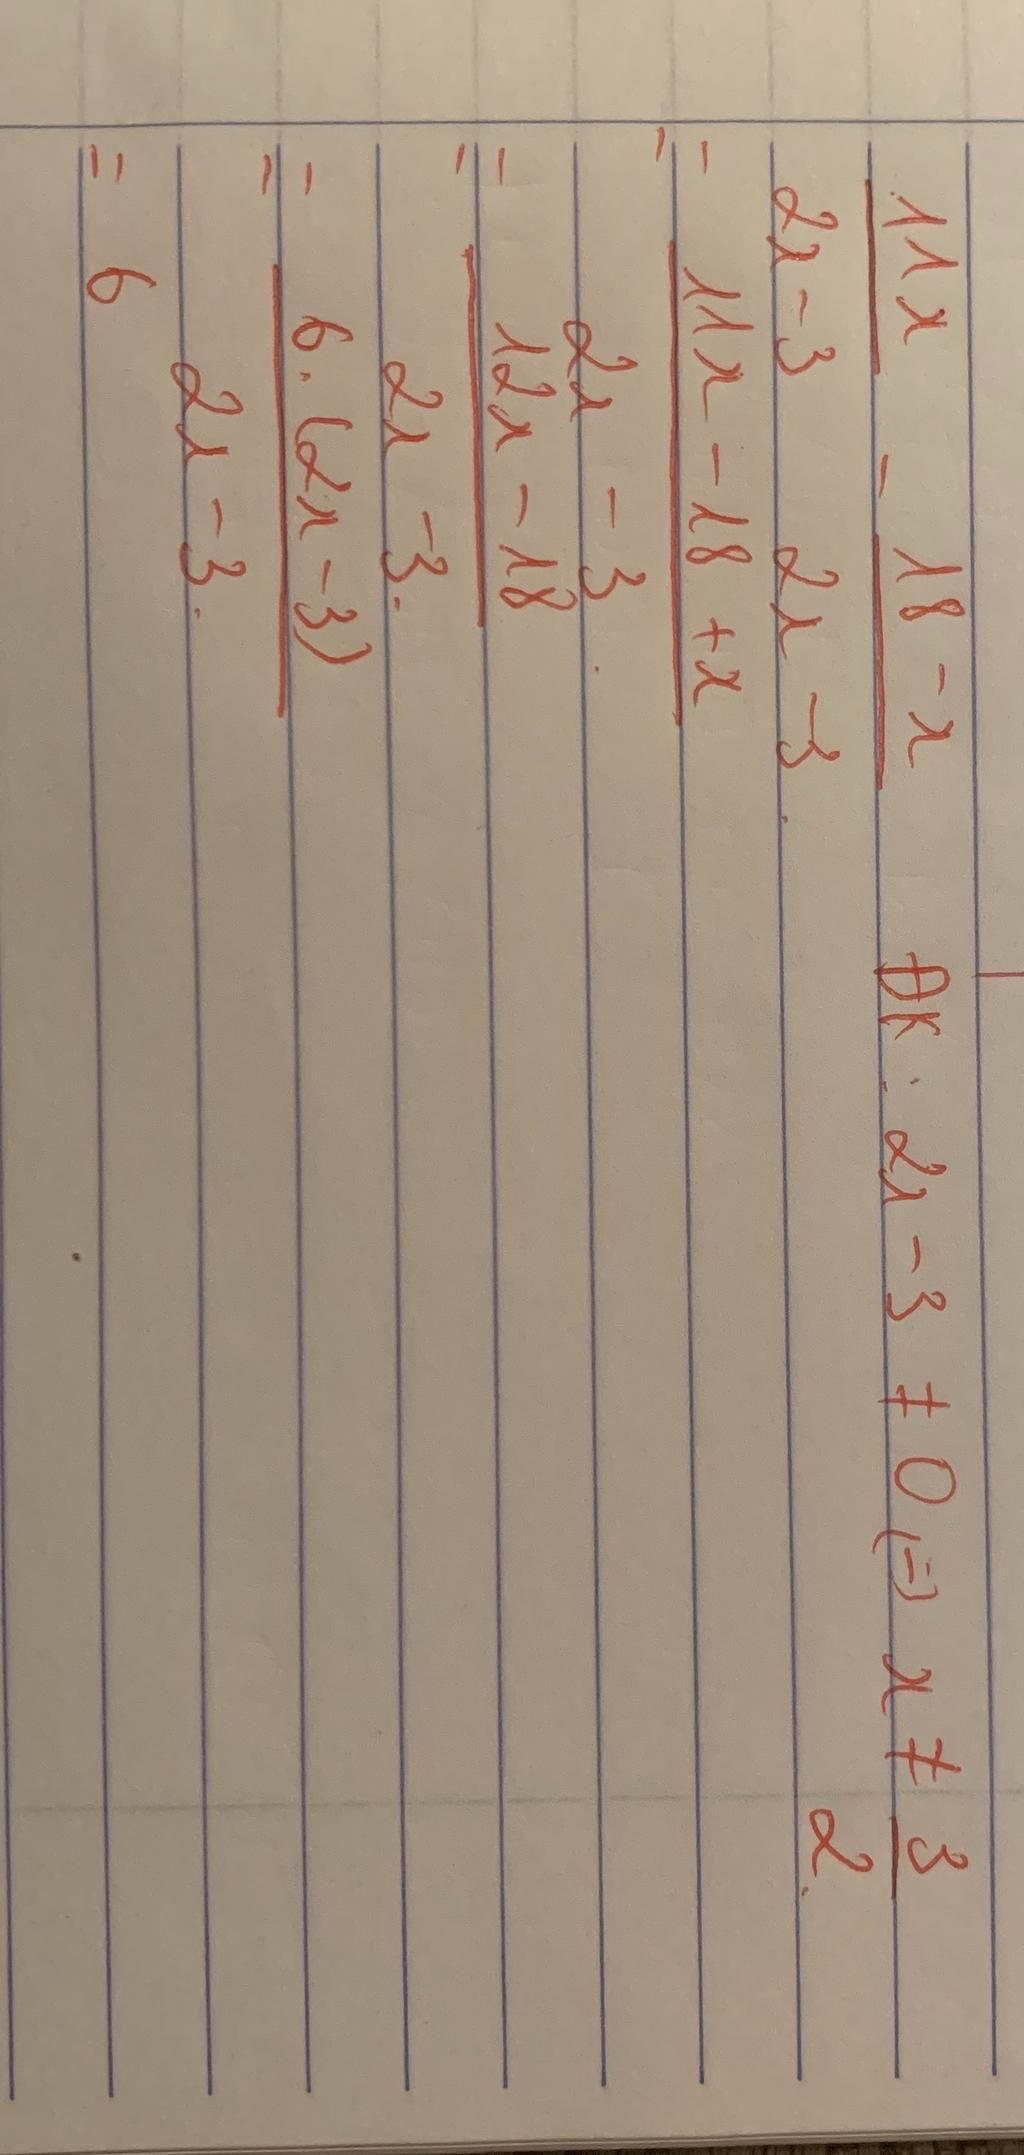 11x/2x-3 - 18-x/2x-3. ĐK: 2x-3 ≠ 0 (=) x ≠ 3/2.
= 11x-18+x/2x-3.
= 12x-18/2x-3.
= 6.(2x-3)/2x-3.
= 6